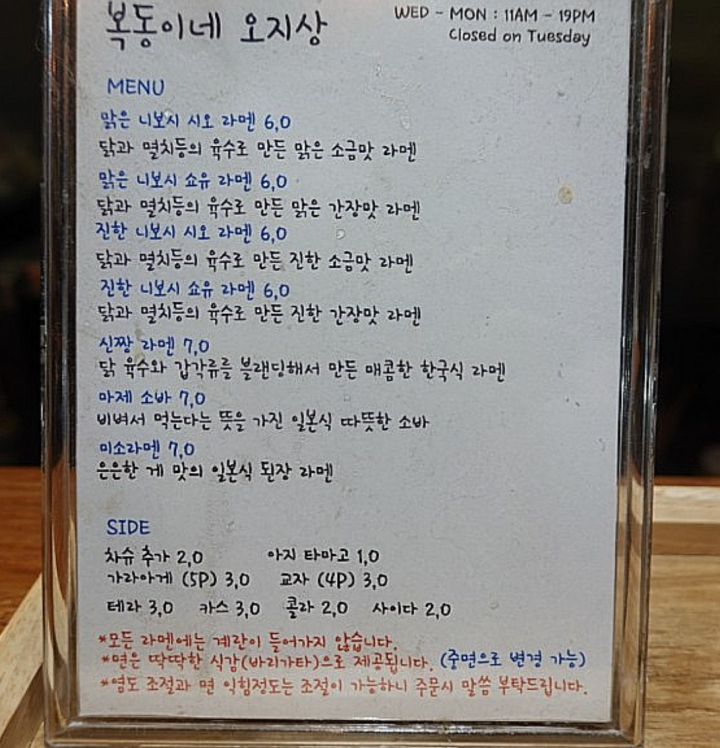 복동이네 오지상
WED - MON : 11AM - 19PM
Closed on Tuesday
MENU
맑은 니보시 시오 라멘 6,0
닭과 멸치등의 육수로 만든 맑은 소금맛 라멘
맑은 니보시 쇼유 라멘 6,0
닭과 멸치등의 육수로 만든 맑은 간장맛 라멘
진한 니보시 시오 라멘 6,0
닭과 멸치등의 육수로 만든 진한 소금맛 라멘
진한 니보시 쇼유 라멘 6,0
닭과 멸치등의 육수로 만든 진한 간장맛 라멘
신짱 라멘 7,0
닭 육수와 갑각류를 블랜딩해서 만든 매콤한 한국식 라멘
마제 소바 7,0
비벼서 먹는다는 뜻을 가진 일본식 따뜻한 소바
미소라멘 7,0
은은한 게 맛의 일본식 된장 라멘
SIDE
차슈 추가 2,0 아지 타마고 1,0
가라아게 (5P) 3,0 교자 (4P) 3,0
테라 3,0 카스 3,0 콜라 2,0 사이다 2,0
*모든 라멘에는 계란이 들어가지 않습니다.
*면은 딱딱한 식감(바리가타)으로 제공됩니다. (중면으로 변경 가능)
*염도 조절과 면 익힘정도는 조절이 가능하니 주문시 말씀 부탁드립니다.